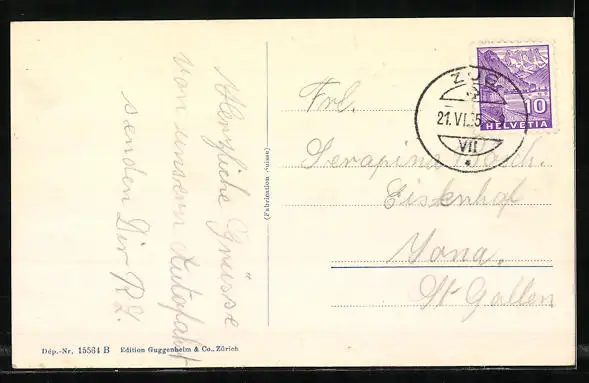 Herzliche Grüsse
von unserer Autofahrt
senden Dir R L.
(Fabrication Suisse)
Dép.-Nr. 15564 B Edition Guggenheim & Co., Zürich
ZUG
21.VI.35
VII
10
HELVETIA
Frl.
Serapina
Eisenhof
Jona.
St Gallen